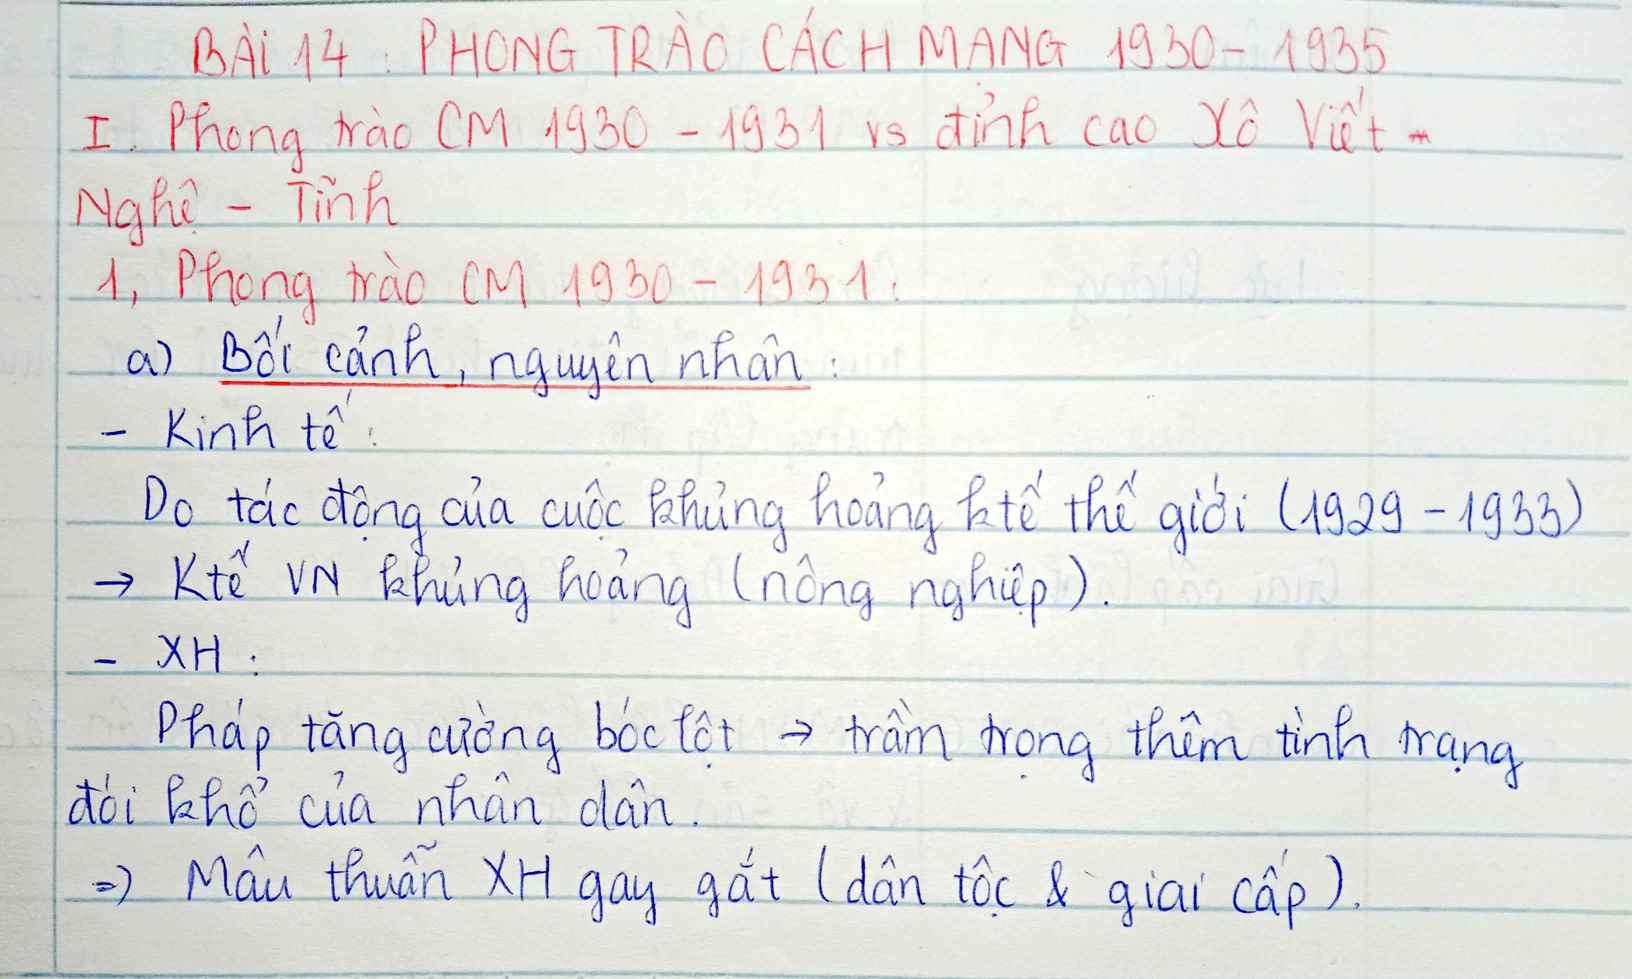 BÀI 14 : PHONG TRÀO CÁCH MANG 1930 - 1935
I. Phong trào CM 1930 - 1931 vs đỉnh cao Xô Viết -
Nghệ - Tĩnh
1, Phong trào CM 1930 - 1931 :
a) Bối cảnh, nguyên nhân :
- Kinh tế :
Do tác động của cuộc khủng hoảng ktế thế giới (1929 - 1933)
→ Ktế VN khủng hoảng (nông nghiệp).
- XH :
Pháp tăng cường bóc lột → trầm trọng thêm tình trạng
đói khổ của nhân dân.
=> Mâu thuẫn XH gay gắt (dân tộc & giai cấp).